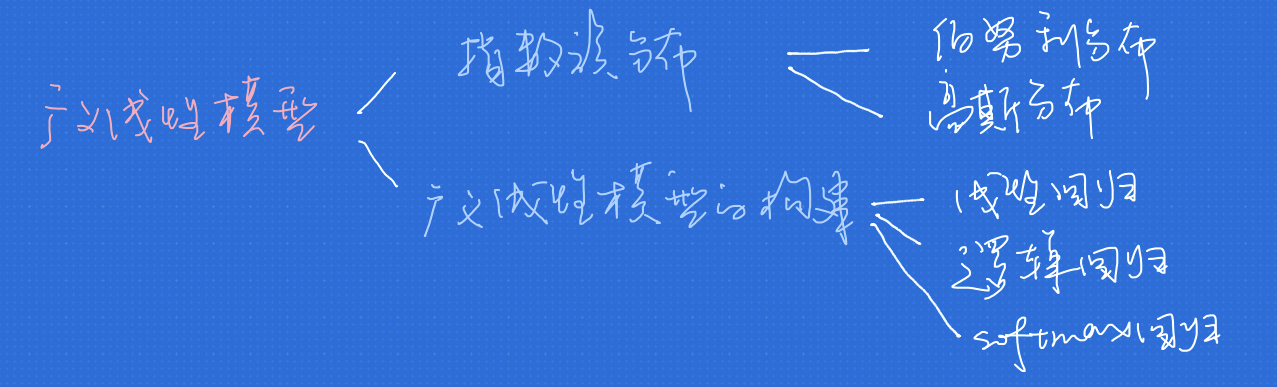 广义线性模型
指数族分布
伯努利分布
高斯分布
广义线性模型的构建
线性回归
逻辑回归
softmax回归